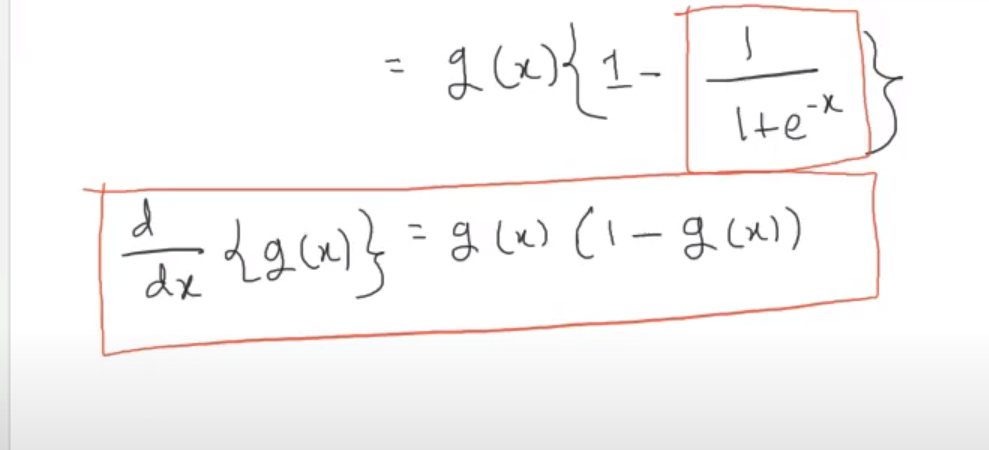 = g(x){1 - 1/(1+e^-x)}
d/dx {g(x)} = g(x) (1 - g(x))